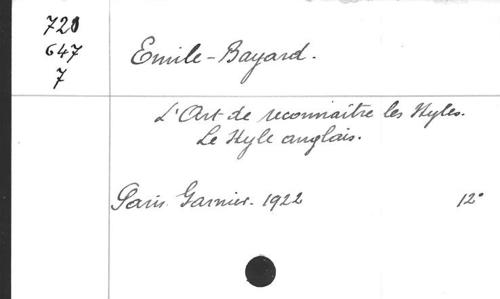 720
647
7
Emile-Bayard.
L'Art de reconnaître les styles.
Le style anglais.
Paris Garnier. 1922 12°